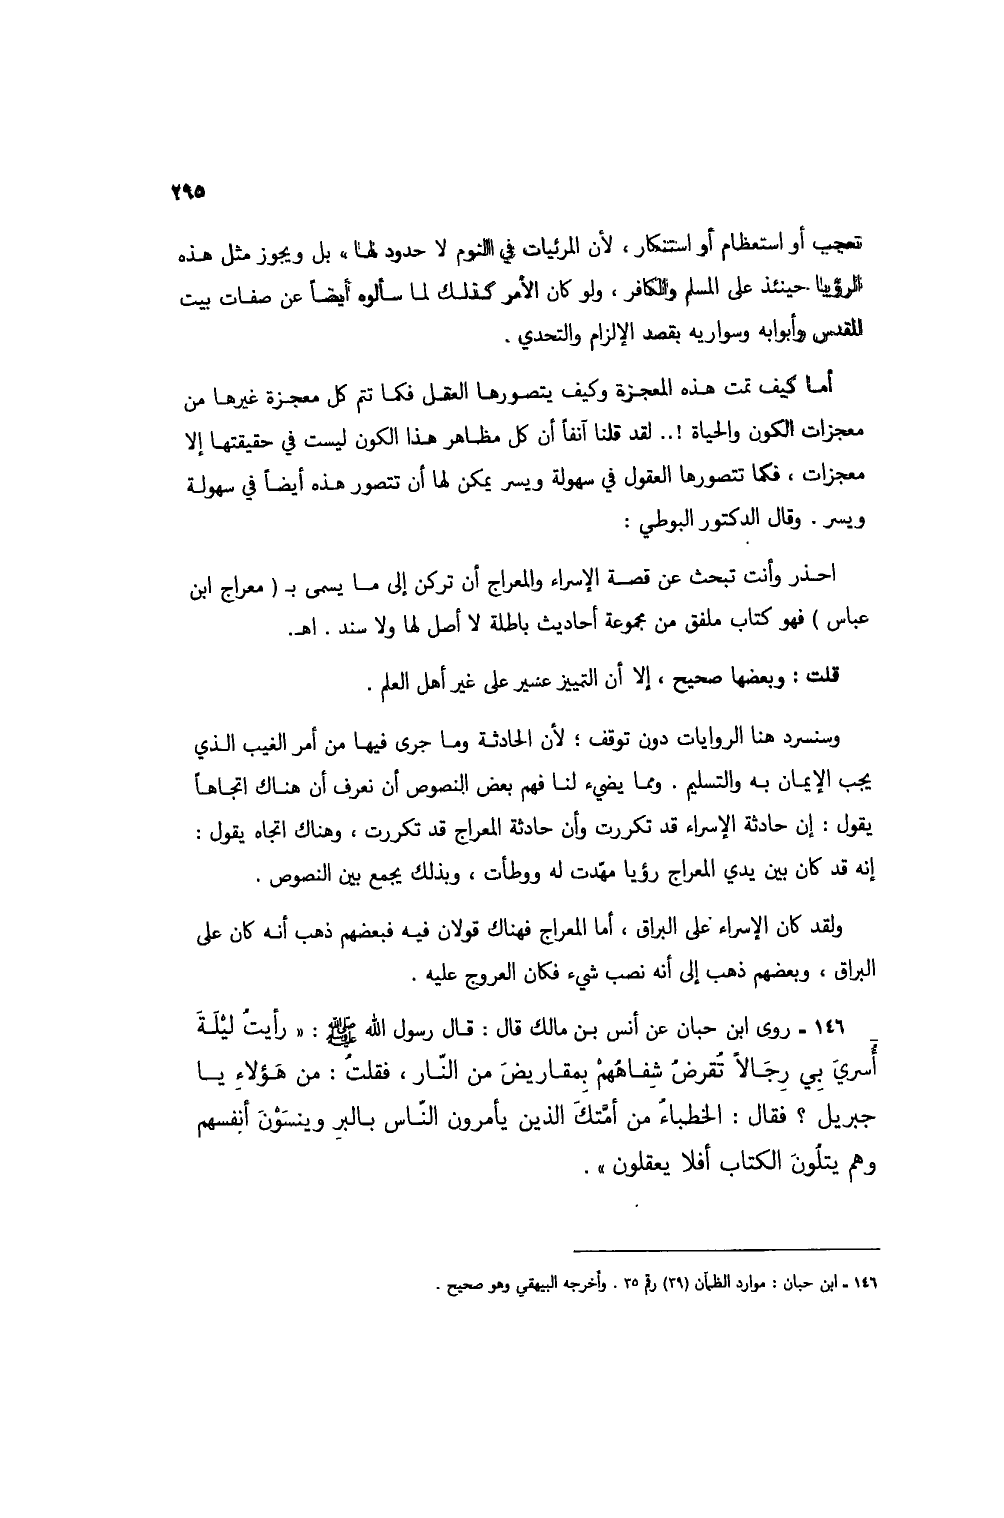 ٢٩٥
تعجب أو استعظام أو استنكار ، لأن المرئيات في النوم لا حدود لها ، بل ويجوز مثل هذه
الرؤيا حينئذ على المسلم والكافر ، ولو كان الأمر كذلك لما سألوه أيضاً عن صفات بيت
المقدس وأبوابه وسواريه بقصد الإلزام والتحدي .
أما كيف تمت هذه المعجزة وكيف يتصورها العقل فكما تتم كل معجزة غيرها من
معجزات الكون والحياة !.. لقد قلنا آنفاً أن كل مظاهر هذا الكون ليست في حقيقتها إلا
معجزات ، فكما تتصورها العقول في سهولة ويسر يمكن لها أن تتصور هذه أيضاً في سهولة
ويسر . وقال الدكتور البوطي :
احذر وأنت تبحث عن قصة الإسراء والمعراج أن تركن إلى ما يسمى بـ ( معراج ابن
عباس ) فهو كتاب ملفق من مجموعة أحاديث باطلة لا أصل لها ولا سند . اهـ.
قلت : وبعضها صحيح ، إلا أن التمييز عسير على غير أهل العلم .
وسنسرد هنا الروايات دون توقف ؛ لأن الحادثة وما جرى فيها من أمر الغيب الذي
يجب الإيمان به والتسليم . ومما يضيء لنا فهم بعض النصوص أن نعرف أن هناك اتجاهاً
يقول : إن حادثة الإسراء قد تكررت وأن حادثة المعراج قد تكررت ، وهناك اتجاه يقول :
إنه قد كان بين يدي المعراج رؤيا مهّدت له ووطأت ، وبذلك يجمع بين النصوص .
ولقد كان الإسراء على البراق ، أما المعراج فهناك قولان فيه فبعضهم ذهب أنه كان على
البراق ، وبعضهم ذهب إلى أنه نصب شيء فكان العروج عليه .
١٤٦ - روى ابن حبان عن أنس بن مالك قال : قال رسول الله ﷺ : « رأيتُ ليْلَةَ
أُسريَ بِي رِجَالاً تُقرضُ شِفاهُهُمْ بِمقاريضَ من النّار ، فقلتُ : من هَؤلاءِ يا
جبريل ؟ فقال : الخطباءُ من أمّتكَ الذين يأمرون النّاس بالبرِ وينسَوْنَ أنفسهم
وهم يتلُونَ الكتاب أفلا يعقلون » .
١٤٦ - ابن حبان : موارد الظمآن (٣٩) رقم ٣٥ . وأخرجه البيهقي وهو صحيح .